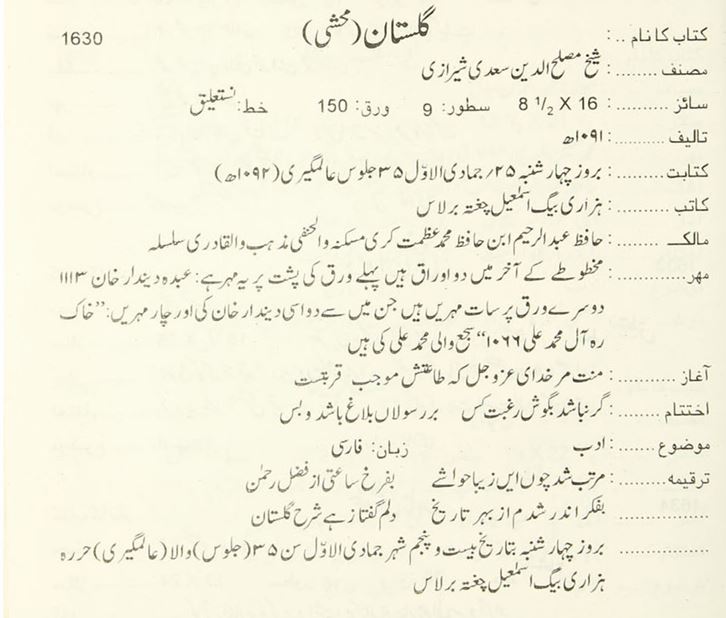 کتاب کا نام ..: گلستان (محشی) 1630
مصنف ........: شیخ مصلح الدین سعدی شیرازی
سائز ..........: 8 1/2 X 16 سطور: 9 ورق: 150 خط: نستعلیق
تالیف ..........: ۱۰۹۱ھ
کتابت ..........: بروز چہار شنبہ ۲۵؍ جمادی الاوّل ۳۵ جلوس عالمگیری (۱۰۹۲ھ)
کاتب ..........: ہزاری بیگ اسمٰعیل چغتہ برلاس
مالک ..........: حافظ عبدالرحیم ابن حافظ محمد عظمت کری مسکنہ والحنفی مذہب والقادری سلسلہ
مہر ..........: مخطوطے کے آخر میں دو اوراق ہیں پہلے ورق کی پشت پر یہ مہر ہے: عبدہ دیندار خان ۱۱۱۳
دوسرے ورق پر سات مہریں ہیں جن میں سے دو اسی دیندار خان کی اور چار مہریں: ’’خاک
رہ آل محمد علی ۱۰۶۶‘‘ سجع والی محمد علی کی ہیں
آغاز ..........: منت مر خدای عزوجل کہ طاعتش موجب قربتست
اختتام ........: گر نباشد بگوش رغبت کس بررسولاں بلاغ باشد و بس
موضوع ........: ادب زبان: فارسی
ترقیمہ ........: مرتب شد چوں ایں زیبا حواشے بفرخ ساعتی از فضل رحمٰن
................ بفکر اندر شدم از بہر تاریخ دلم گفتا زہے شرح گلستان
................ بروز چہار شنبہ بتاریخ بیست و پنجم شہر جمادی الاوّل سن ۳۵ (جلوس) والا (عالمگیری) حررہ
ہزاری بیگ اسمٰعیل چغتہ برلاس